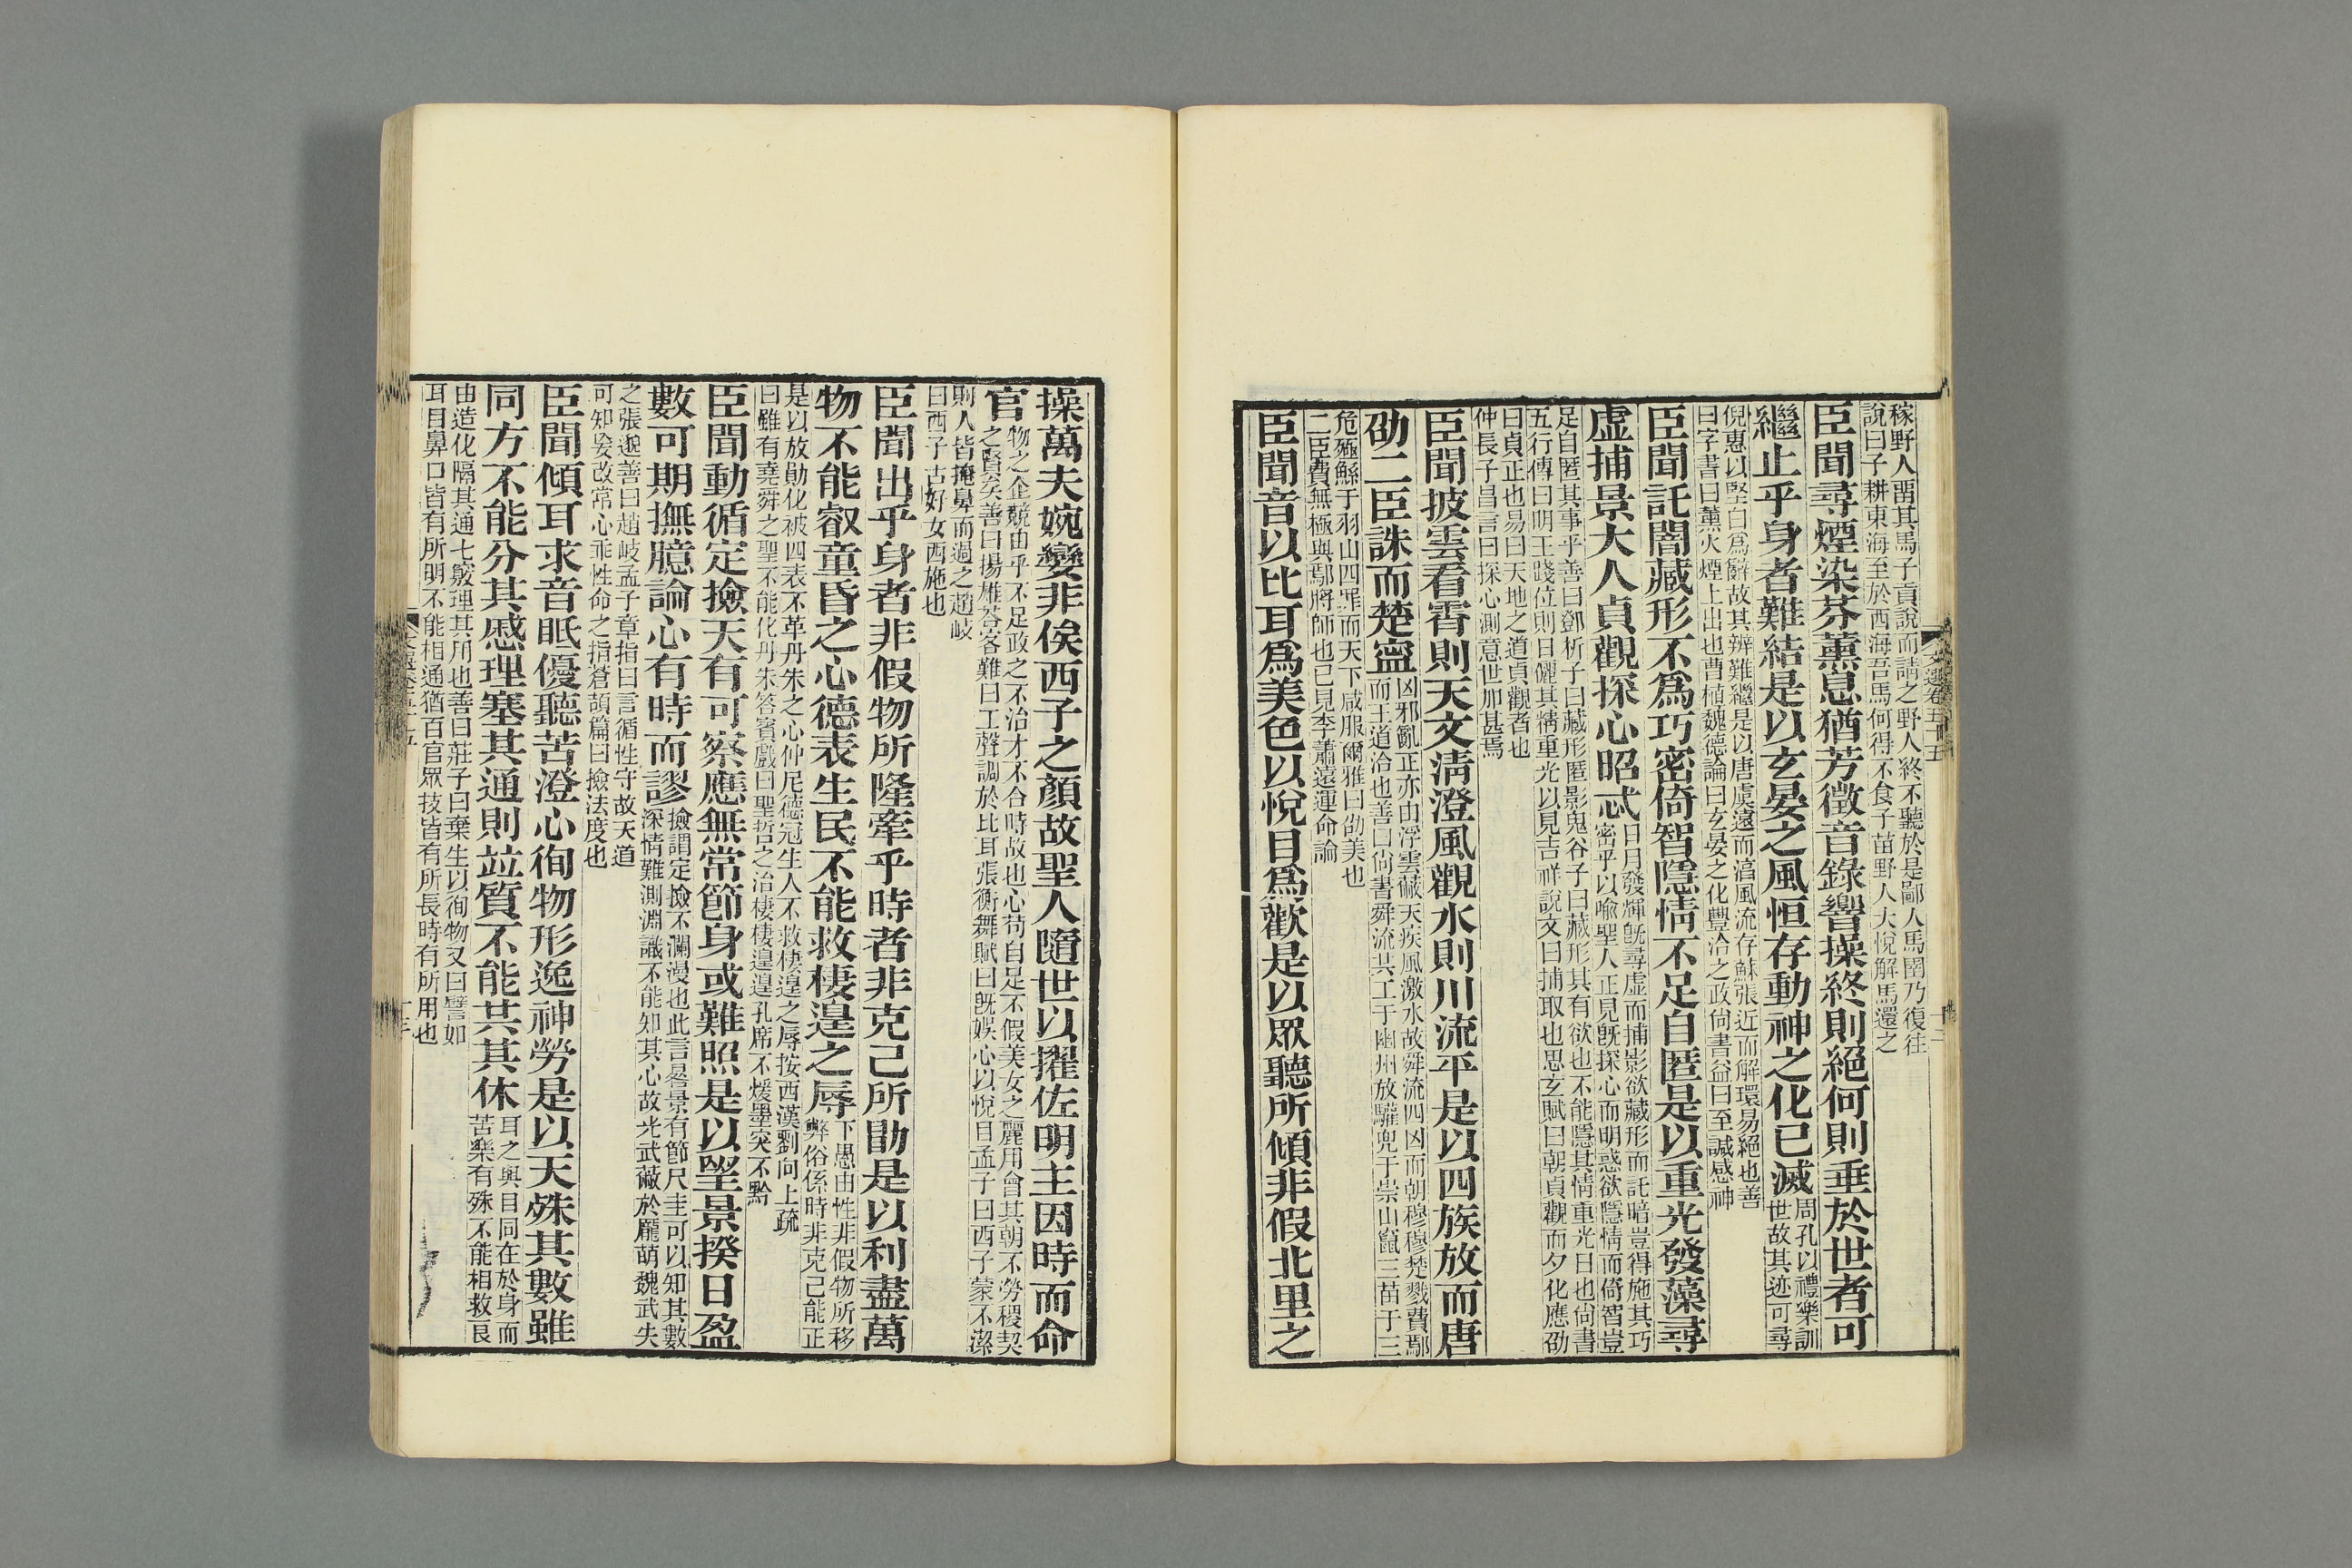 稼野人畱其馬子貢說而請之野人終不聽於是鄙人馬圉乃復往
說曰子耕東海至於西海吾馬何得不食子苗野人大悅解馬還之
臣聞尋煙染芬薰息猶芳徵音錄響操終則絕何則垂於世者可
繼止乎身者難結是以玄晏之風恒存動神之化已滅
周孔以禮樂訓
世故其迹可尋
倪惠以堅白為辭故其辨難繼是以唐虞遠而淳風流存蘇張近而解環易絕也善
曰字書曰薰火煙上出也曹植魏德論曰玄晏之化豐洽之政尙書益曰至諴感神
臣聞託闇藏形不爲巧密倚智隱情不足自匿是以重光發藻尋
虛捕景大人貞觀探心昭忒
日月發輝旣尋虛而捕影欲藏形而託暗豈得施其巧
密乎以喻聖人正見旣探心而明惑欲隱情而倚智豈
足自匿其事乎善曰鄧析子曰藏形匿影鬼谷子曰藏形其有欲也不能隱其情重光日也尙書
五行傳曰明王踐位則日儷其精重光以見吉祥說文曰捕取也思玄賦曰朝貞觀而夕化應劭
曰貞正也易曰天地之道貞觀者也
仲長子昌言曰探心測意世加甚焉
臣聞披雲看霄則天文淸澄風觀水則川流平是以四族放而唐
劭二臣誅而楚寧
凶邪亂正亦由浮雲蔽天疾風激水故舜流四凶而朝穆穆楚戮費鄢
而王道洽也善曰尙書舜流共工于幽州放驩兜于崇山竄三苗于三
危殛鯀于羽山四罪而天下咸服爾雅曰劭美也
二臣費無極與鄢將師也已見李蕭遠運命論
臣聞音以比耳爲美色以悅目爲歡是以眾聽所傾非假北里之
文選卷五十五
十二
操萬夫婉孌非俟西子之顏故聖人隨世以擢佐明主因時而命
官
物之企競由乎不足政之不治才不合時故也心苟自足不假美女之麗用會其朝不勞稷契
之賢矣善曰揚雄答客難曰工聲調於比耳張衡舞賦曰旣娛心以悅目孟子曰西子蒙不潔
則人皆掩鼻而過之趙岐
曰西子古好女西施也
臣聞出乎身者非假物所隆牽乎時者非克己所勖是以利盡萬
物不能叡童昏之心德表生民不能救棲遑之辱
下愚由性非假物所移
弊俗係時非克己能正
是以放勛化被四表不革丹朱之心仲尼德冠生人不救棲遑之辱按西漢劉向上疏
曰雖有堯舜之聖不能化丹朱答賓戲曰聖哲之治棲棲遑遑孔席不煖墨突不黔
臣聞動循定撿天有可察應無常節身或難照是以望景揆日盈
數可期撫臆論心有時而謬
撿謂定撿不瀾漫也此言晷景有節尺圭可以知其數
深情難測淵識不能知其心故光武蔽於龐萌魏武失
之張邈善曰趙岐孟子章指曰言循性守故天道
可知妄改常心乖性命之指蒼頡篇曰撿法度也
臣聞傾耳求音眡優聽苦澄心徇物形逸神勞是以天殊其數雖
同方不能分其慼理塞其通則竝質不能共其休
耳之與目同在於身而
苦樂有殊不能相救良
由造化隔其通七竅理其用也善曰莊子曰棄生以徇物又曰譬如
耳目鼻口皆有所明不能相通猶百官眾技皆有所長時有所用也